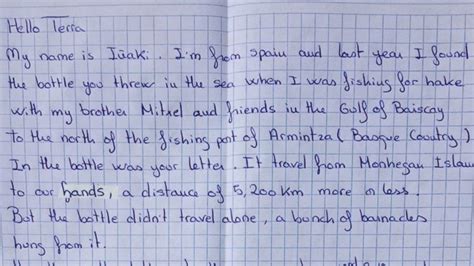 Hello Terra
My name is Iñaki. I'm from spain and last year I found
the bottle you threw in the sea when I was fishing for hake
with my brother Mitxel and friends in the Gulf of Baiscay
to the north of the fishing port of Armintza (Basque Country)
In the bottle was your letter. It travel from Monhegan Islan
to our hands, a distance of 5,200 km more o less.
But the bottle didn't travel alone, a bunch of barnacles
hung from it.